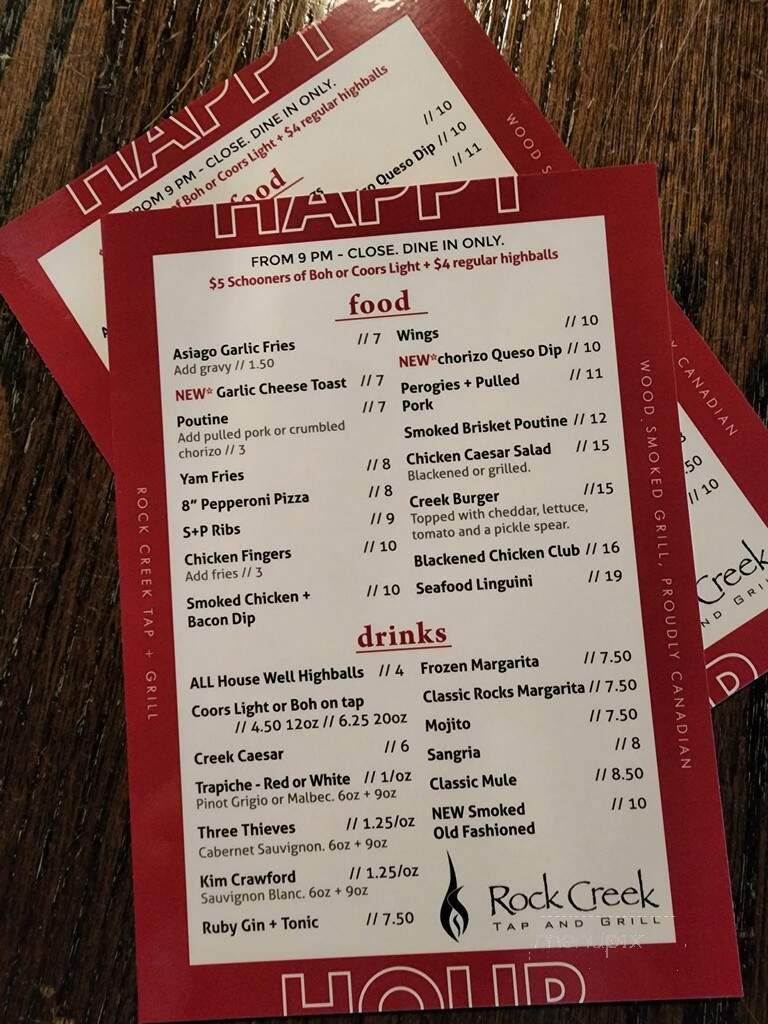 HAPPY
FROM 9 PM - CLOSE. DINE IN ONLY.
$5 Schooners of Boh or Coors Light + $4 regular highballs
food
Asiago Garlic Fries // 7
Add gravy // 1.50
NEW* Garlic Cheese Toast // 7
Poutine // 7
Add pulled pork or crumbled
chorizo // 3
Yam Fries // 8
8" Pepperoni Pizza // 8
S+P Ribs // 9
Chicken Fingers // 10
Add fries // 3
Smoked Chicken + // 10
Bacon Dip
Wings // 10
NEW*chorizo Queso Dip // 10
Perogies + Pulled // 11
Pork
Smoked Brisket Poutine // 12
Chicken Caesar Salad // 15
Blackened or grilled.
Creek Burger //15
Topped with cheddar, lettuce,
tomato and a pickle spear.
Blackened Chicken Club // 16
Seafood Linguini // 19
drinks
ALL House Well Highballs // 4
Coors Light or Boh on tap
// 4.50 12oz // 6.25 20oz
Creek Caesar // 6
Trapiche - Red or White // 1/oz
Pinot Grigio or Malbec. 6oz + 9oz
Three Thieves // 1.25/oz
Cabernet Sauvignon. 6oz + 9oz
Kim Crawford // 1.25/oz
Sauvignon Blanc. 6oz + 9oz
Ruby Gin + Tonic // 7.50
Frozen Margarita // 7.50
Classic Rocks Margarita // 7.50
Mojito // 7.50
Sangria // 8
Classic Mule // 8.50
NEW Smoked // 10
Old Fashioned
Rock Creek
TAP AND GRILL
HOUR
ROCK CREEK TAP + GRILL
WOOD SMOKED GRILL, PROUDLY CANADIAN
HAPPY
FROM 9 PM - CLOSE. DINE IN ONLY.
of Boh or Coors Light + $4 regular highballs
food
// 10
Queso Dip // 10
// 11
WOOD S
CANADIAN
.50
// 10
Creek
AND GRILL
menupix